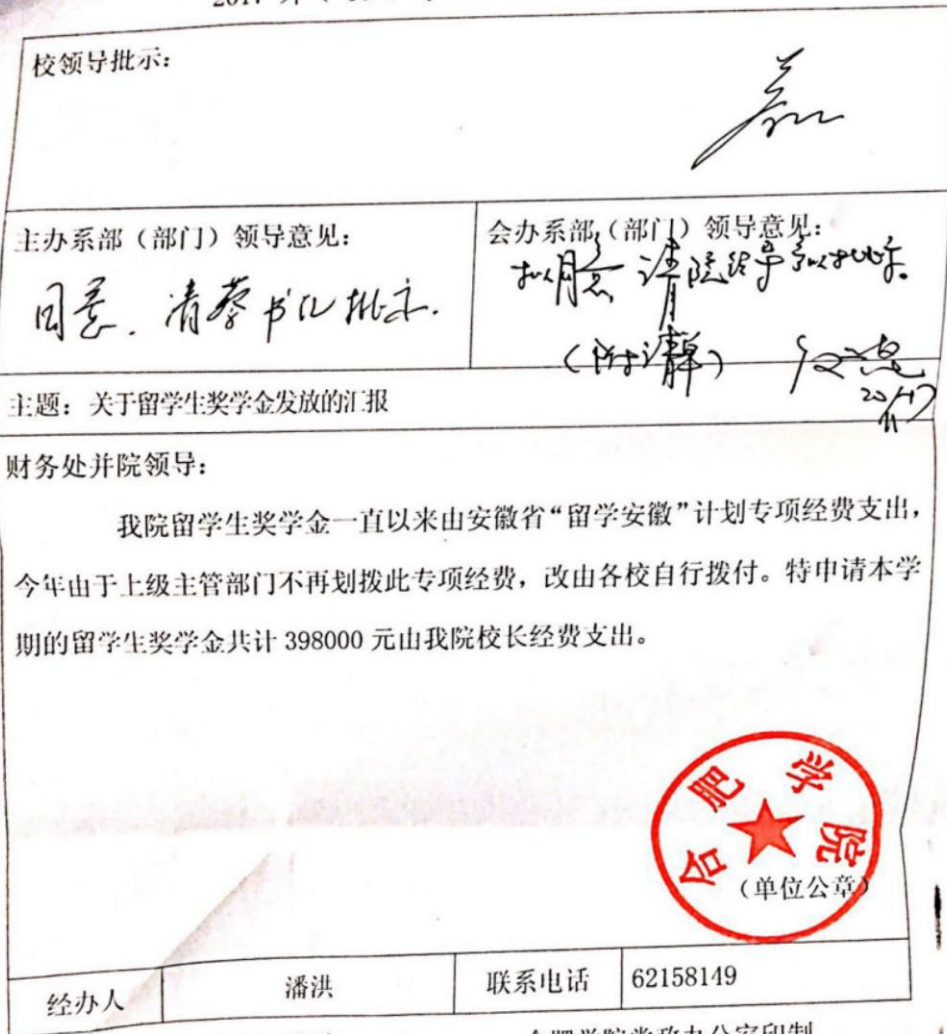 校领导批示:
主办系部（部门）领导意见:
同意. 请蔡书记批示.
会办系部（部门）领导意见:
拟同意 请院领导予以批示.
（附清单）
2017
11
主题: 关于留学生奖学金发放的汇报
财务处并院领导:
我院留学生奖学金一直以来由安徽省“留学安徽”计划专项经费支出，
今年由于上级主管部门不再划拨此专项经费，改由各校自行拨付。特申请本学
期的留学生奖学金共计 398000 元由我院校长经费支出。
合肥学院
（单位公章）
经办人 潘洪 联系电话 62158149
合肥学院党政办公室印制